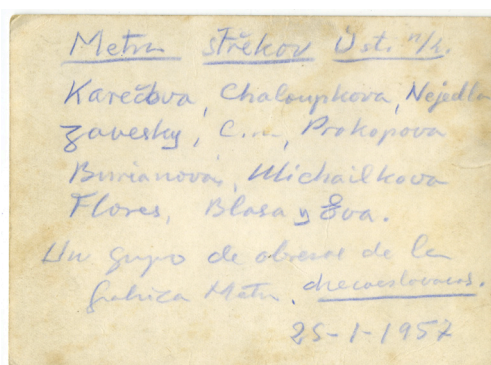 Metra Střekov Ust. n/L.
Karešova, Chaloupkova, Nejedla
Zavesky, C..., Prokopova
Burianová, Michailkova
Flores, Blasa y Eva.
Un grupo de obreras de la
fabrica Metra, checoeslovacas.
25-1-1957